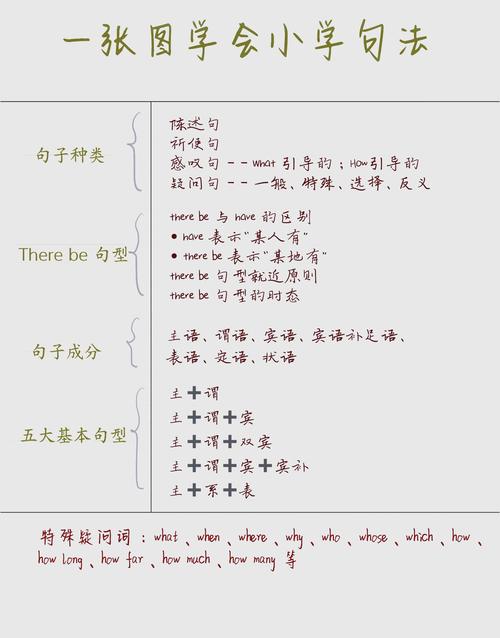 一张图学会小学句法
句子种类
陈述句
祈使句
感叹句 -- what 引导的；How引导的
疑问句 -- 一般、特殊、选择、反义
There be 句型
there be 与 have 的区别
• have 表示"某人有"
• there be 表示"某地有"
there be 句型就近原则
there be 句型的时态
句子成分
主语、谓语、宾语、宾语补足语、
表语、定语、状语
五大基本句型
主➕谓
主➕谓➕宾
主➕谓➕双宾
主➕谓➕宾➕宾补
主➕系➕表
特殊疑问词：what 、when 、where 、why 、who 、whose 、which 、how 、
how long 、how far 、how much 、how many 等